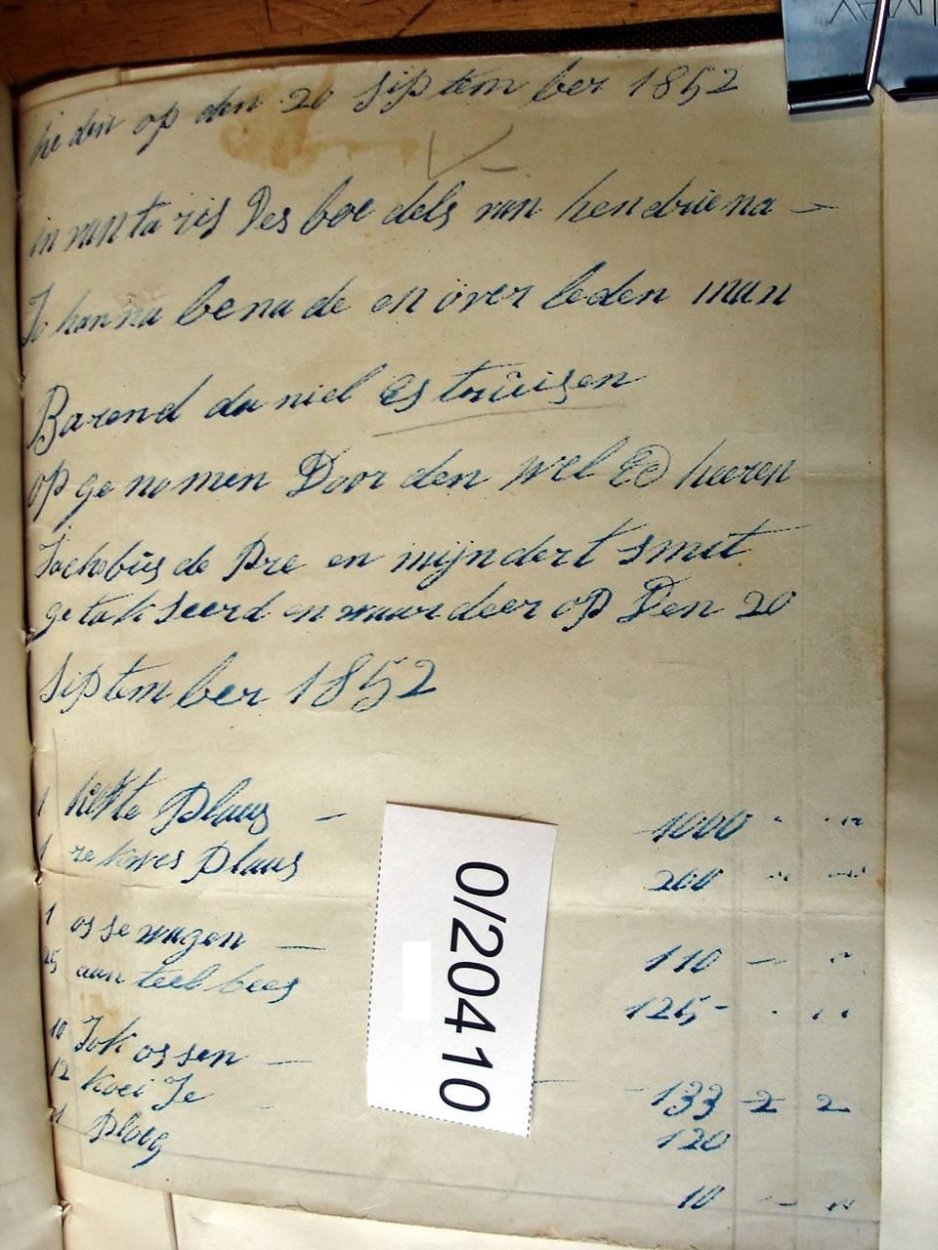 he den op den 20 Siptem ber 1852
in van ta ris Des boe dels van hendrie na
Johanna bena de en over leden man
Barend da niel Es truisen
op ge no men Door den wel Ed heeren
Jackobus de Pre en mijndert smit
ge tak seerd en waardeer op Den 20
Siptember 1852
1 Plaas — 1000 " "
1 re kwes Plaas 200 " "
1 os se wagen — 110 — "
25 aan teel bees 125 - " "
10 Jok ossen — 133 2 2
12 koei Je 120
1 Ploeg 10 — "
0/20410